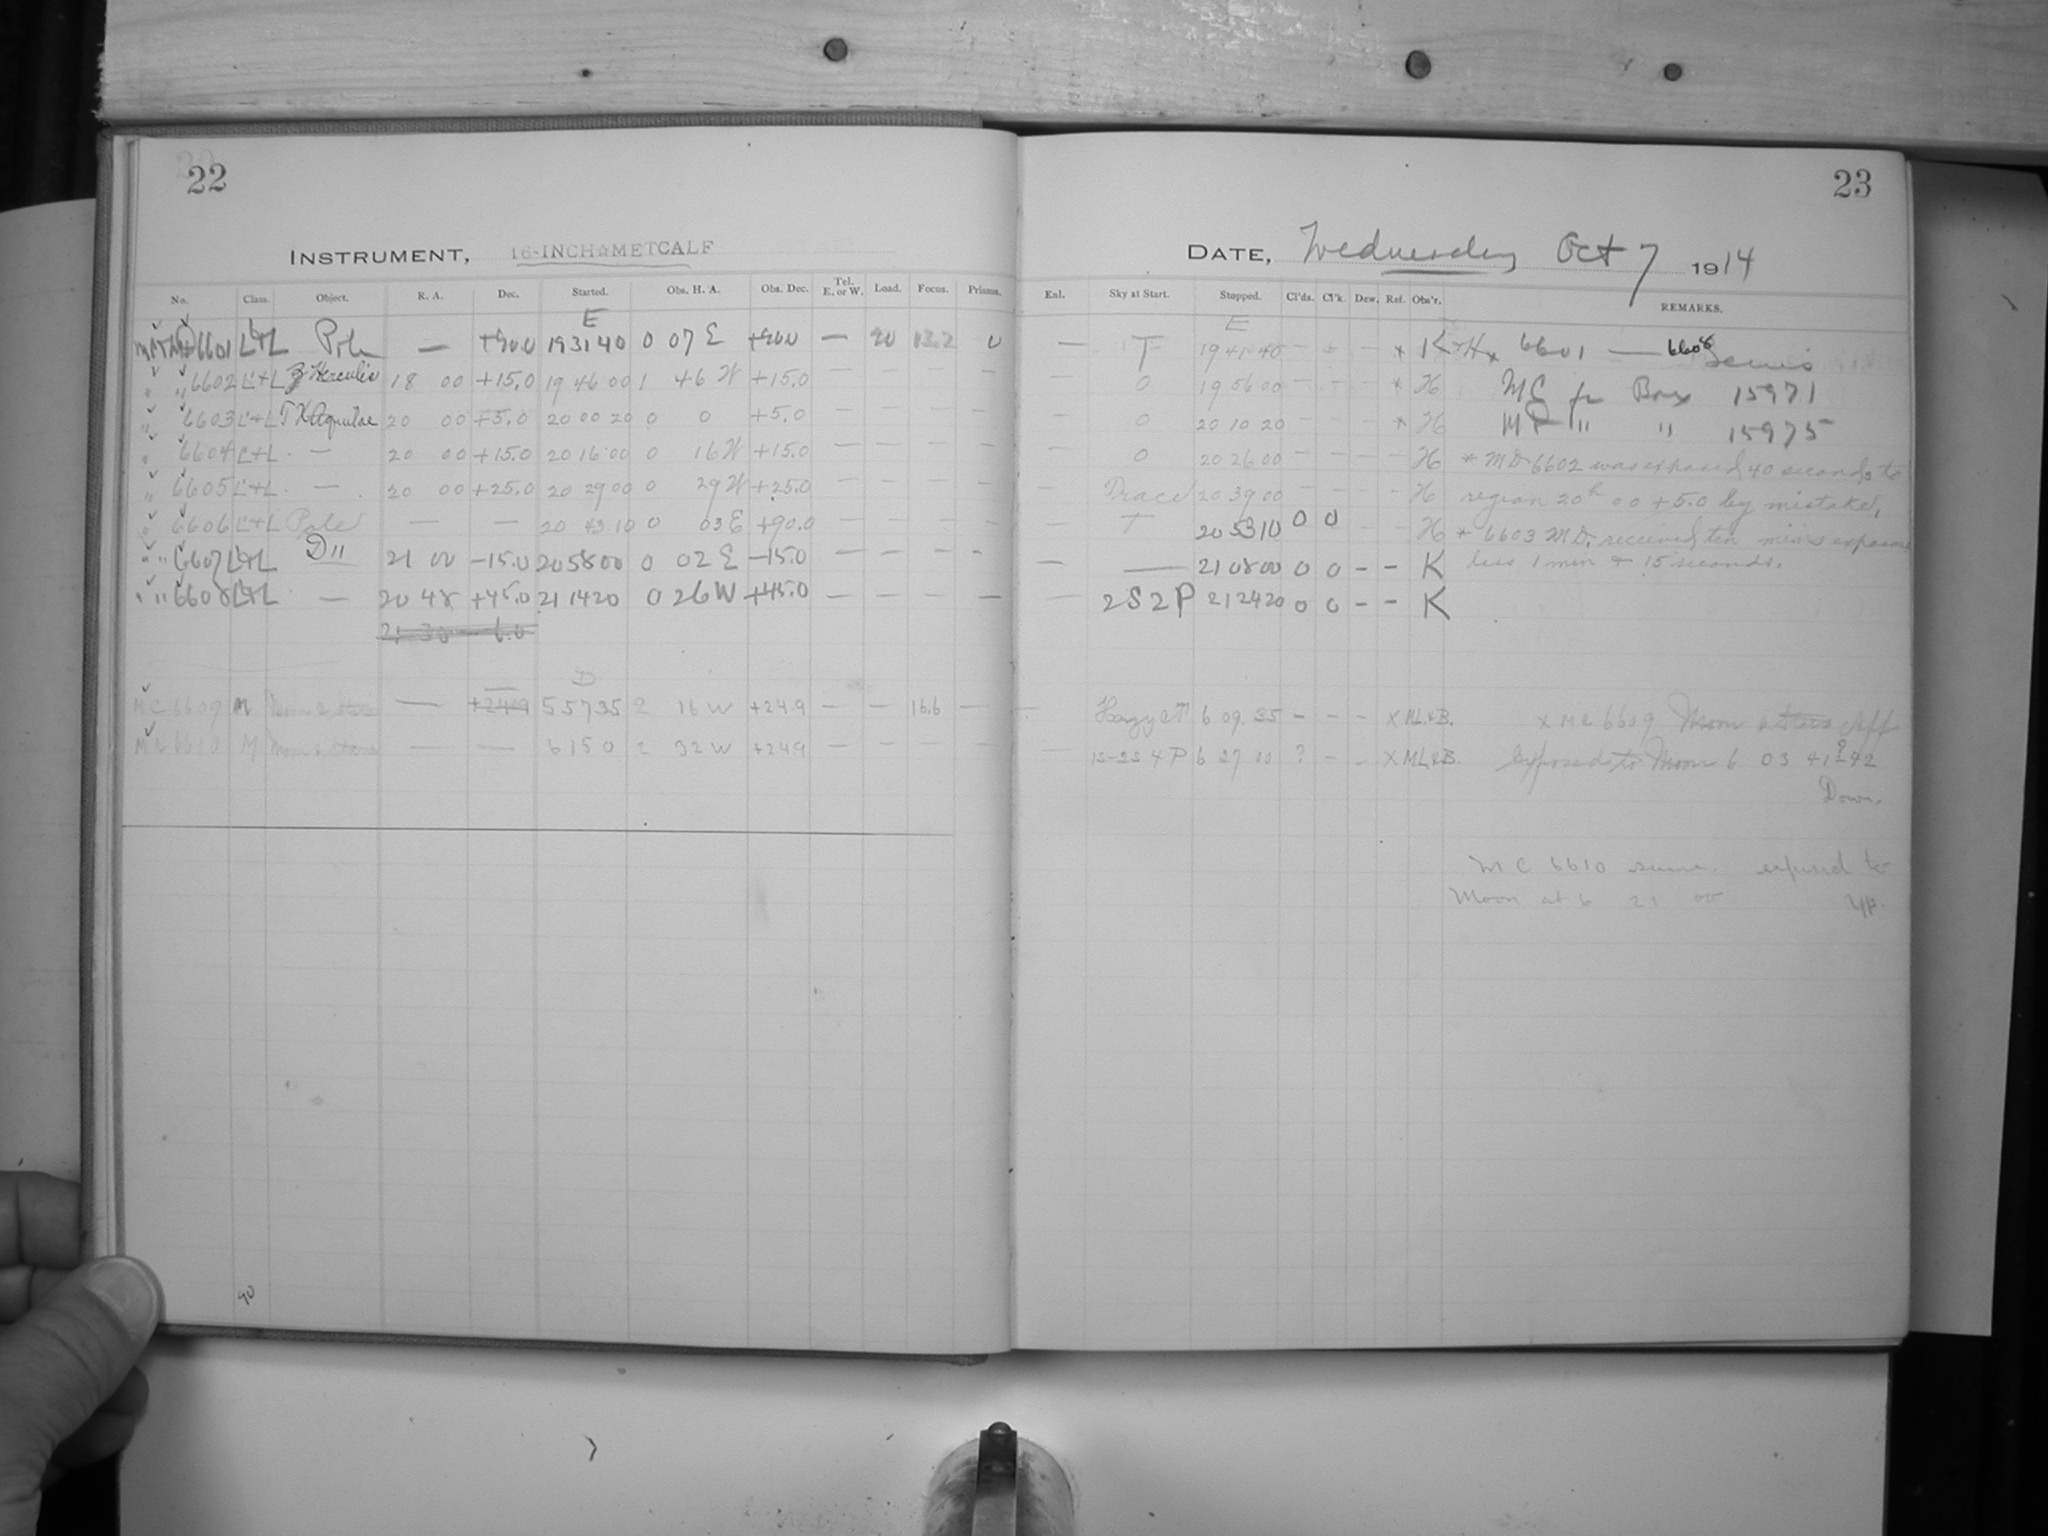 22
INSTRUMENT, 16-INCH☆METCALF
No. Class. Object. R. A. Dec. Started. Obs. H. A. Obs. Dec. Tel. E. or W. Load. Focus. Prisms.
E
6601 L+L Pole — +90.0 19 31 40 0 07 E +90.0 — 90 13.2 0
" " 6602 L+L Z Herculis 18 00 +15.0 19 46 00 1 46 W +15.0 — — — —
" 6603 L+L TX Aquilae 20 00 +5.0 20 00 20 0 0 +5.0 — — — —
" 6604 L+L — 20 00 +15.0 20 16 00 0 16 W +15.0 — — — —
" 6605 L+L — 20 00 +25.0 20 29 00 0 29 W +25.0 — — — —
" 6606 L+L Pole — — 20 43 10 0 03 E +90.0 — — — —
" " 6607 L+L D" 21 00 -15.0 20 58 00 0 02 E -15.0 — — — —
" " 6608 L+L — 20 48 +45.0 21 14 20 0 26 W +45.0 — — — —
21 30 — 6.0
D
MC 6609 M Moon & Stars — +24.9 5 57 35 2 16 W +24.9 — — 16.6 —
MC 6610 M Moon & Stars — — 6 15 0 2 32 W +24.9 — — — —
90
23
DATE, Wednesday Oct 7 1914
Enl. Sky at Start. Stopped. Cl'ds. Cl'k. Dew. Ref. Obs'r. REMARKS.
E
— T 19 41 40 — — — * K+H * 6601 — 6608
0 19 56 00 — — — * H MC fr Box 15971
— 0 20 10 20 — — — * H " " 15975
— 0 20 26 00 — — — — H * MD 6602 was exposed 40 seconds to
— Trace 20 39 00 — — — — H region 20h 00 +5.0 by mistake.
— T 20 53 10 0 0 — — H * 6603 MD. received ten mins exposure
— — 21 08 00 0 0 - - K less 1 min + 15 seconds.
— 2S 2P 21 24 20 0 0 - - K
— Hazy 6 09 35 — — — X ML&B. X MC 6609 Moon & Stars
— 1S-2S 4P 6 27 00 ? — — X ML&B. Exposed to Moon 6 03 41 42
Down.
MC 6610 same. exposed to
Moon at 6 21 00 Up.